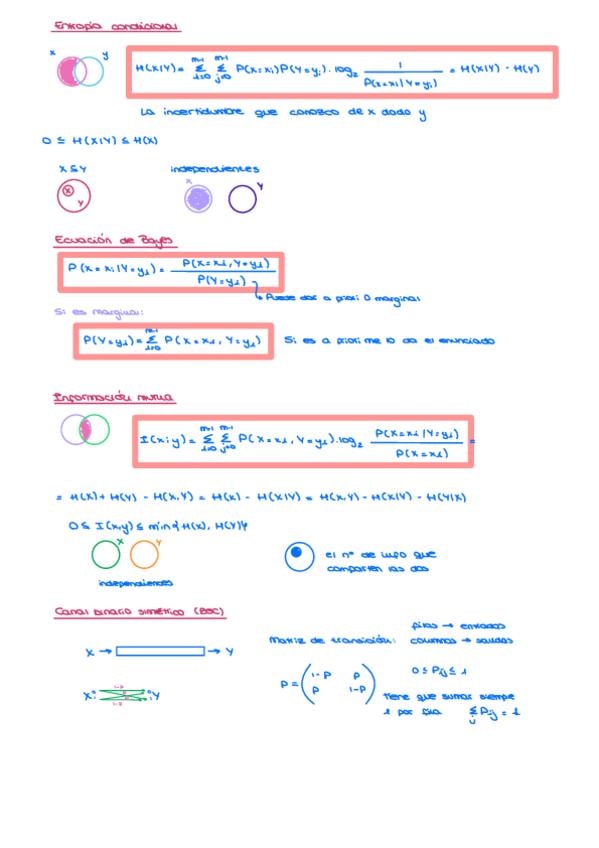 Entropía condicional
x y
H(X|Y) = m-1 Σ i=0 m-1 Σ j=0 P(X=xi)P(Y=yj)·log2 1 / P(X=xi|Y=yj) = H(X|Y) - H(Y)
La incertidumbre que conozco de x dado y
0 ≤ H(X|Y) ≤ H(X)
X ⊆ Y independientes
X Y X Y
Ecuación de Bayes
P(X=xi|Y=yj) = P(X=xi, Y=yj) / P(Y=yj)
↳ Puede dar a priori o marginal
Si es marginal:
P(Y=yj) = m-1 Σ i=0 P(X=xi, Y=yj) Si es a priori me lo da el enunciado
Información mutua
I(x;y) = m-1 Σ i=0 m-1 Σ j=0 P(X=xi, Y=yj)·log2 P(X=xi|Y=yj) / P(X=xi) =
= H(X) + H(Y) - H(X,Y) = H(X) - H(X|Y) = H(X,Y) - H(X|Y) - H(Y|X)
0 ≤ I(x,y) ≤ min{H(X), H(Y)}
X Y el nº de info que
comparten las dos
independientes
Canal binario simétrico (BSC)
X → Y
Matriz de transición: filas → entradas
columnas → salidas
P = ( 1-P P
P 1-P )
0 ≤ Pij ≤ 1
X Y
1-P
1-P
tiene que sumar siempre
1 por fila Σ j Pij = 1